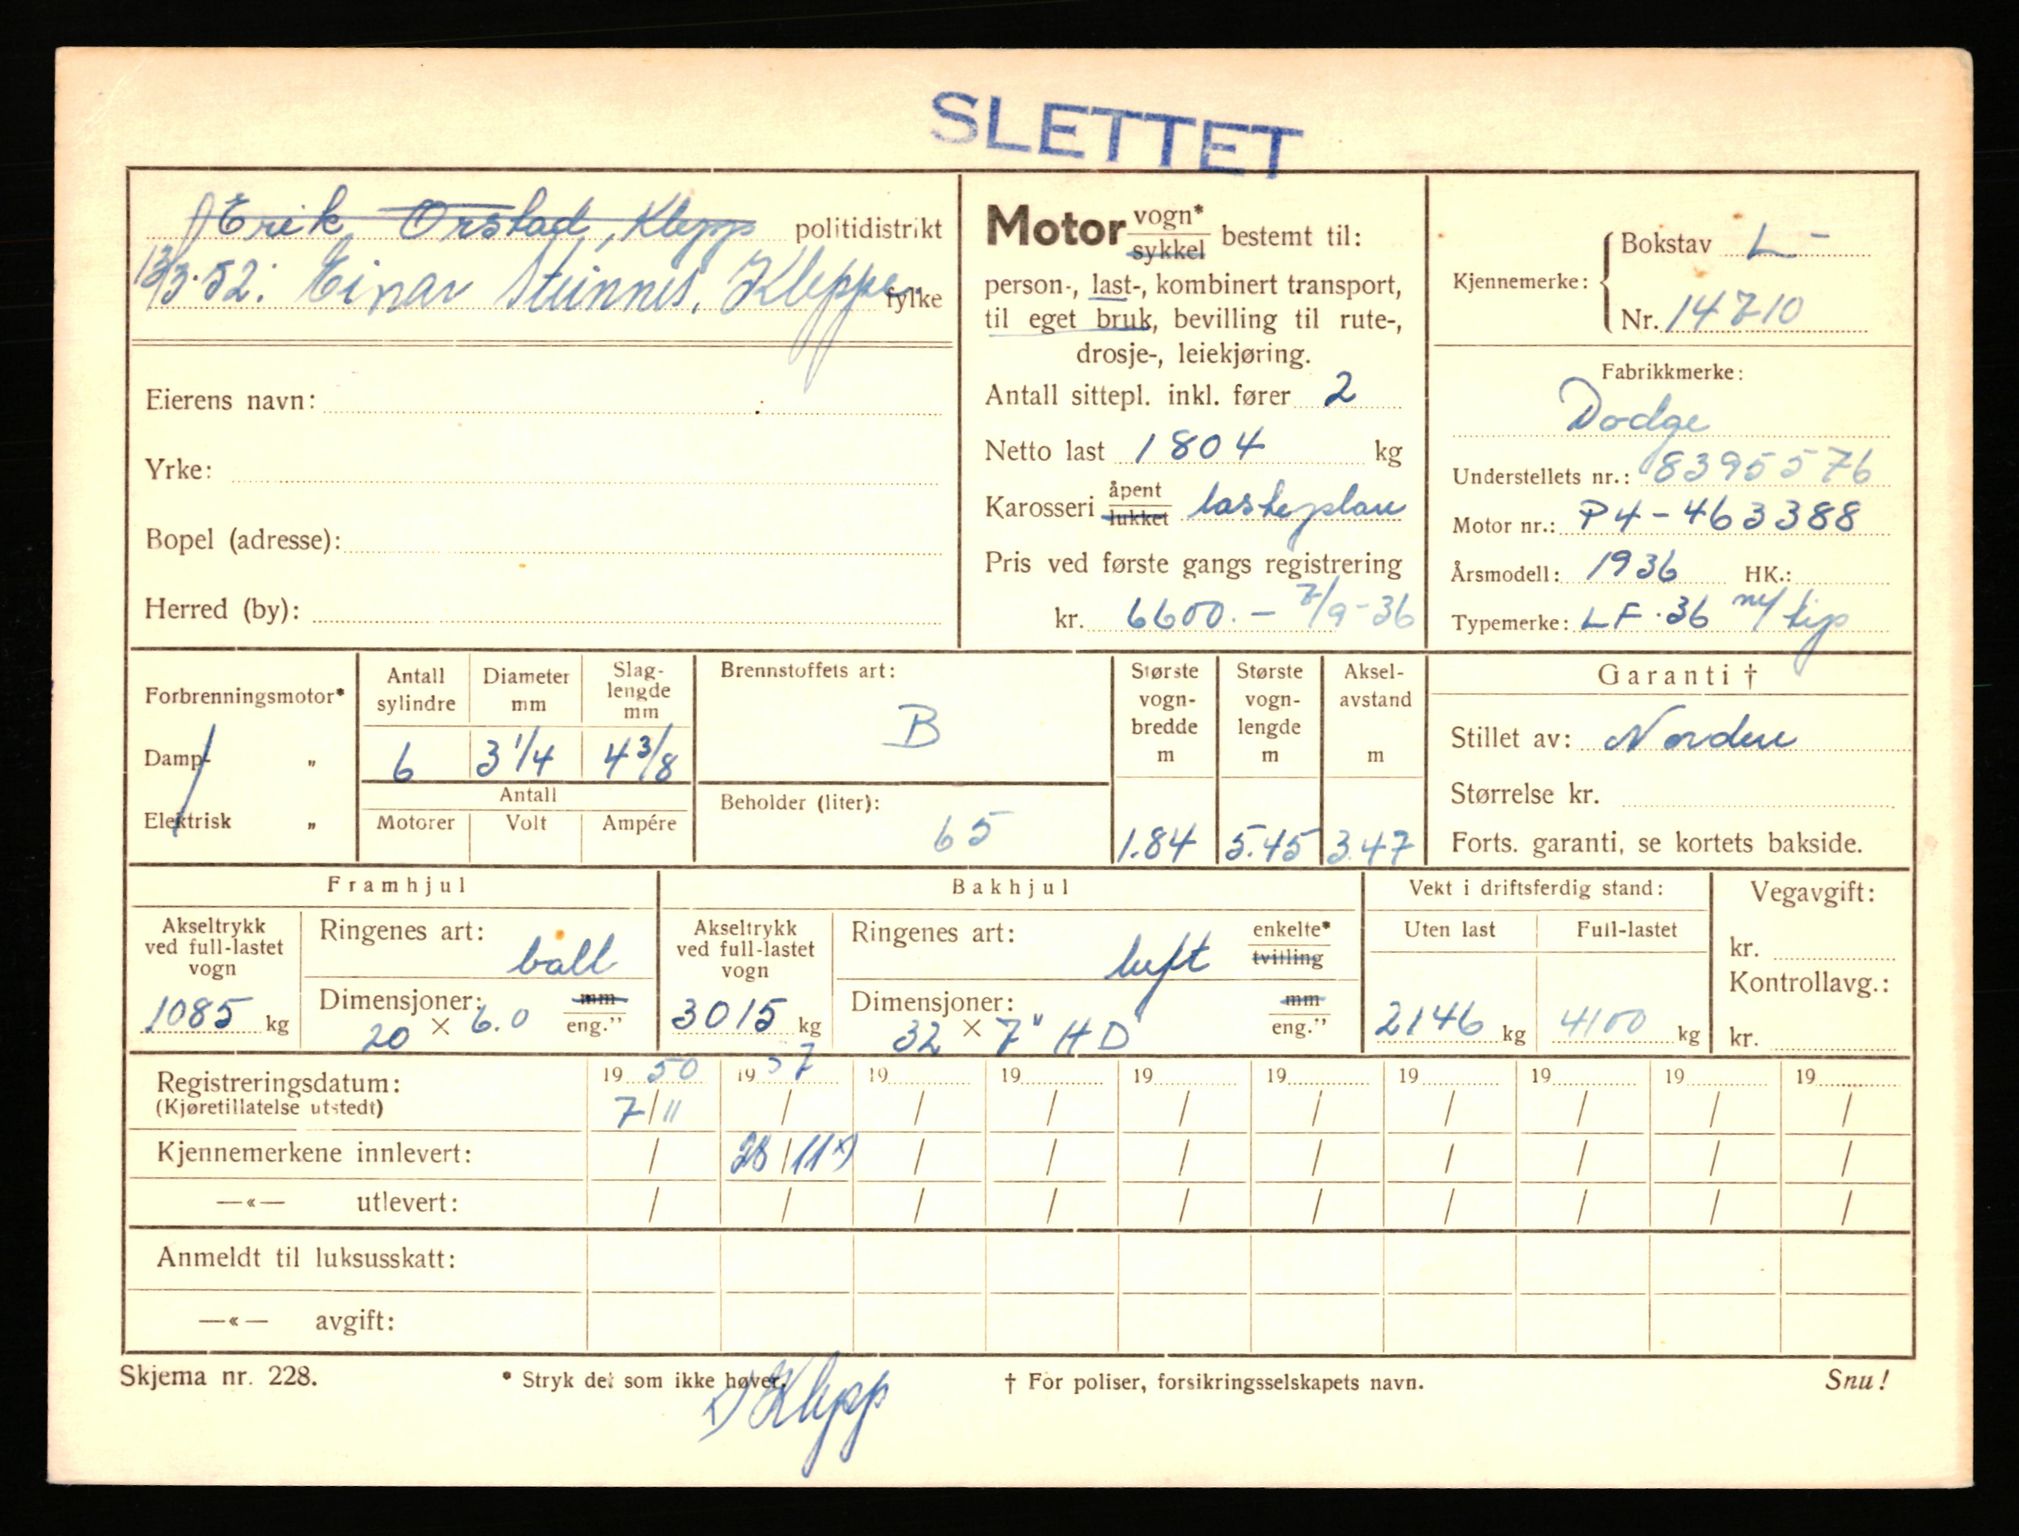 SLETTET
Erik Orstad, Klepp politidistrikt
13/3-52: Einar Steinnes, Kleppe fylke
Eierens navn:
Yrke:
Bopel (adresse):
Herred (by):
Motor vogn* sykkel bestemt til:
person-, last-, kombinert transport,
til eget bruk, bevilling til rute-,
drosje-, leiekjøring.
Antall sittepl. inkl. fører 2
Netto last 1804 kg
Karosseri åpent lukket lasteplan
Pris ved første gangs registrering
kr. 6600.- 7/9-36
Kjennemerke: Bokstav L-
Nr. 14710
Fabrikkmerke:
Dodge
Understellets nr.: 8395576
Motor nr.: P4-463388
Årsmodell: 1936 HK.:
Typemerke: LF.36 m/ tip
Forbrenningsmotor*
Damp- „
Elektrisk „
Antall sylindre
6
Diameter mm
3 1/4
Slag-
lengde
mm
4 3/8
Antall
Motorer Volt Ampére
Brennstoffets art:
B
Beholder (liter):
65
Største
vogn-
bredde
m
1.84
Største
vogn-
lengde
m
5.45
Aksel-
avstand
m
3.47
Garanti †
Stillet av: Norden
Størrelse kr.
Forts. garanti, se kortets bakside.
Framhjul
Akseltrykk
ved full-lastet
vogn
1085 kg
Ringenes art:
ball
Dimensjoner: mm
20 × 6.0 eng.”
Bakhjul
Akseltrykk
ved full-lastet
vogn
3015 kg
Ringenes art: enkelte*
luft tvilling
Dimensjoner: mm
32 × 7" HD eng.”
Vekt i driftsferdig stand:
Uten last Full-lastet
2146 kg 4100 kg
Vegavgift:
kr.
Kontrollavg.:
kr.
Registreringsdatum: 19 50 19 57 19 19 19 19 19 19 19 19
(Kjøretillatelse utstedt) 7/11 / / / / / / / / /
Kjennemerkene innlevert: / 28/11 x) / / / / / / / /
—«— utlevert: / / / / / / / / / /
Anmeldt til luksusskatt:
—«— avgift:
Skjema nr. 228. * Stryk det som ikke høver. † For poliser, forsikringsselskapets navn. Snu!
x) Klepp